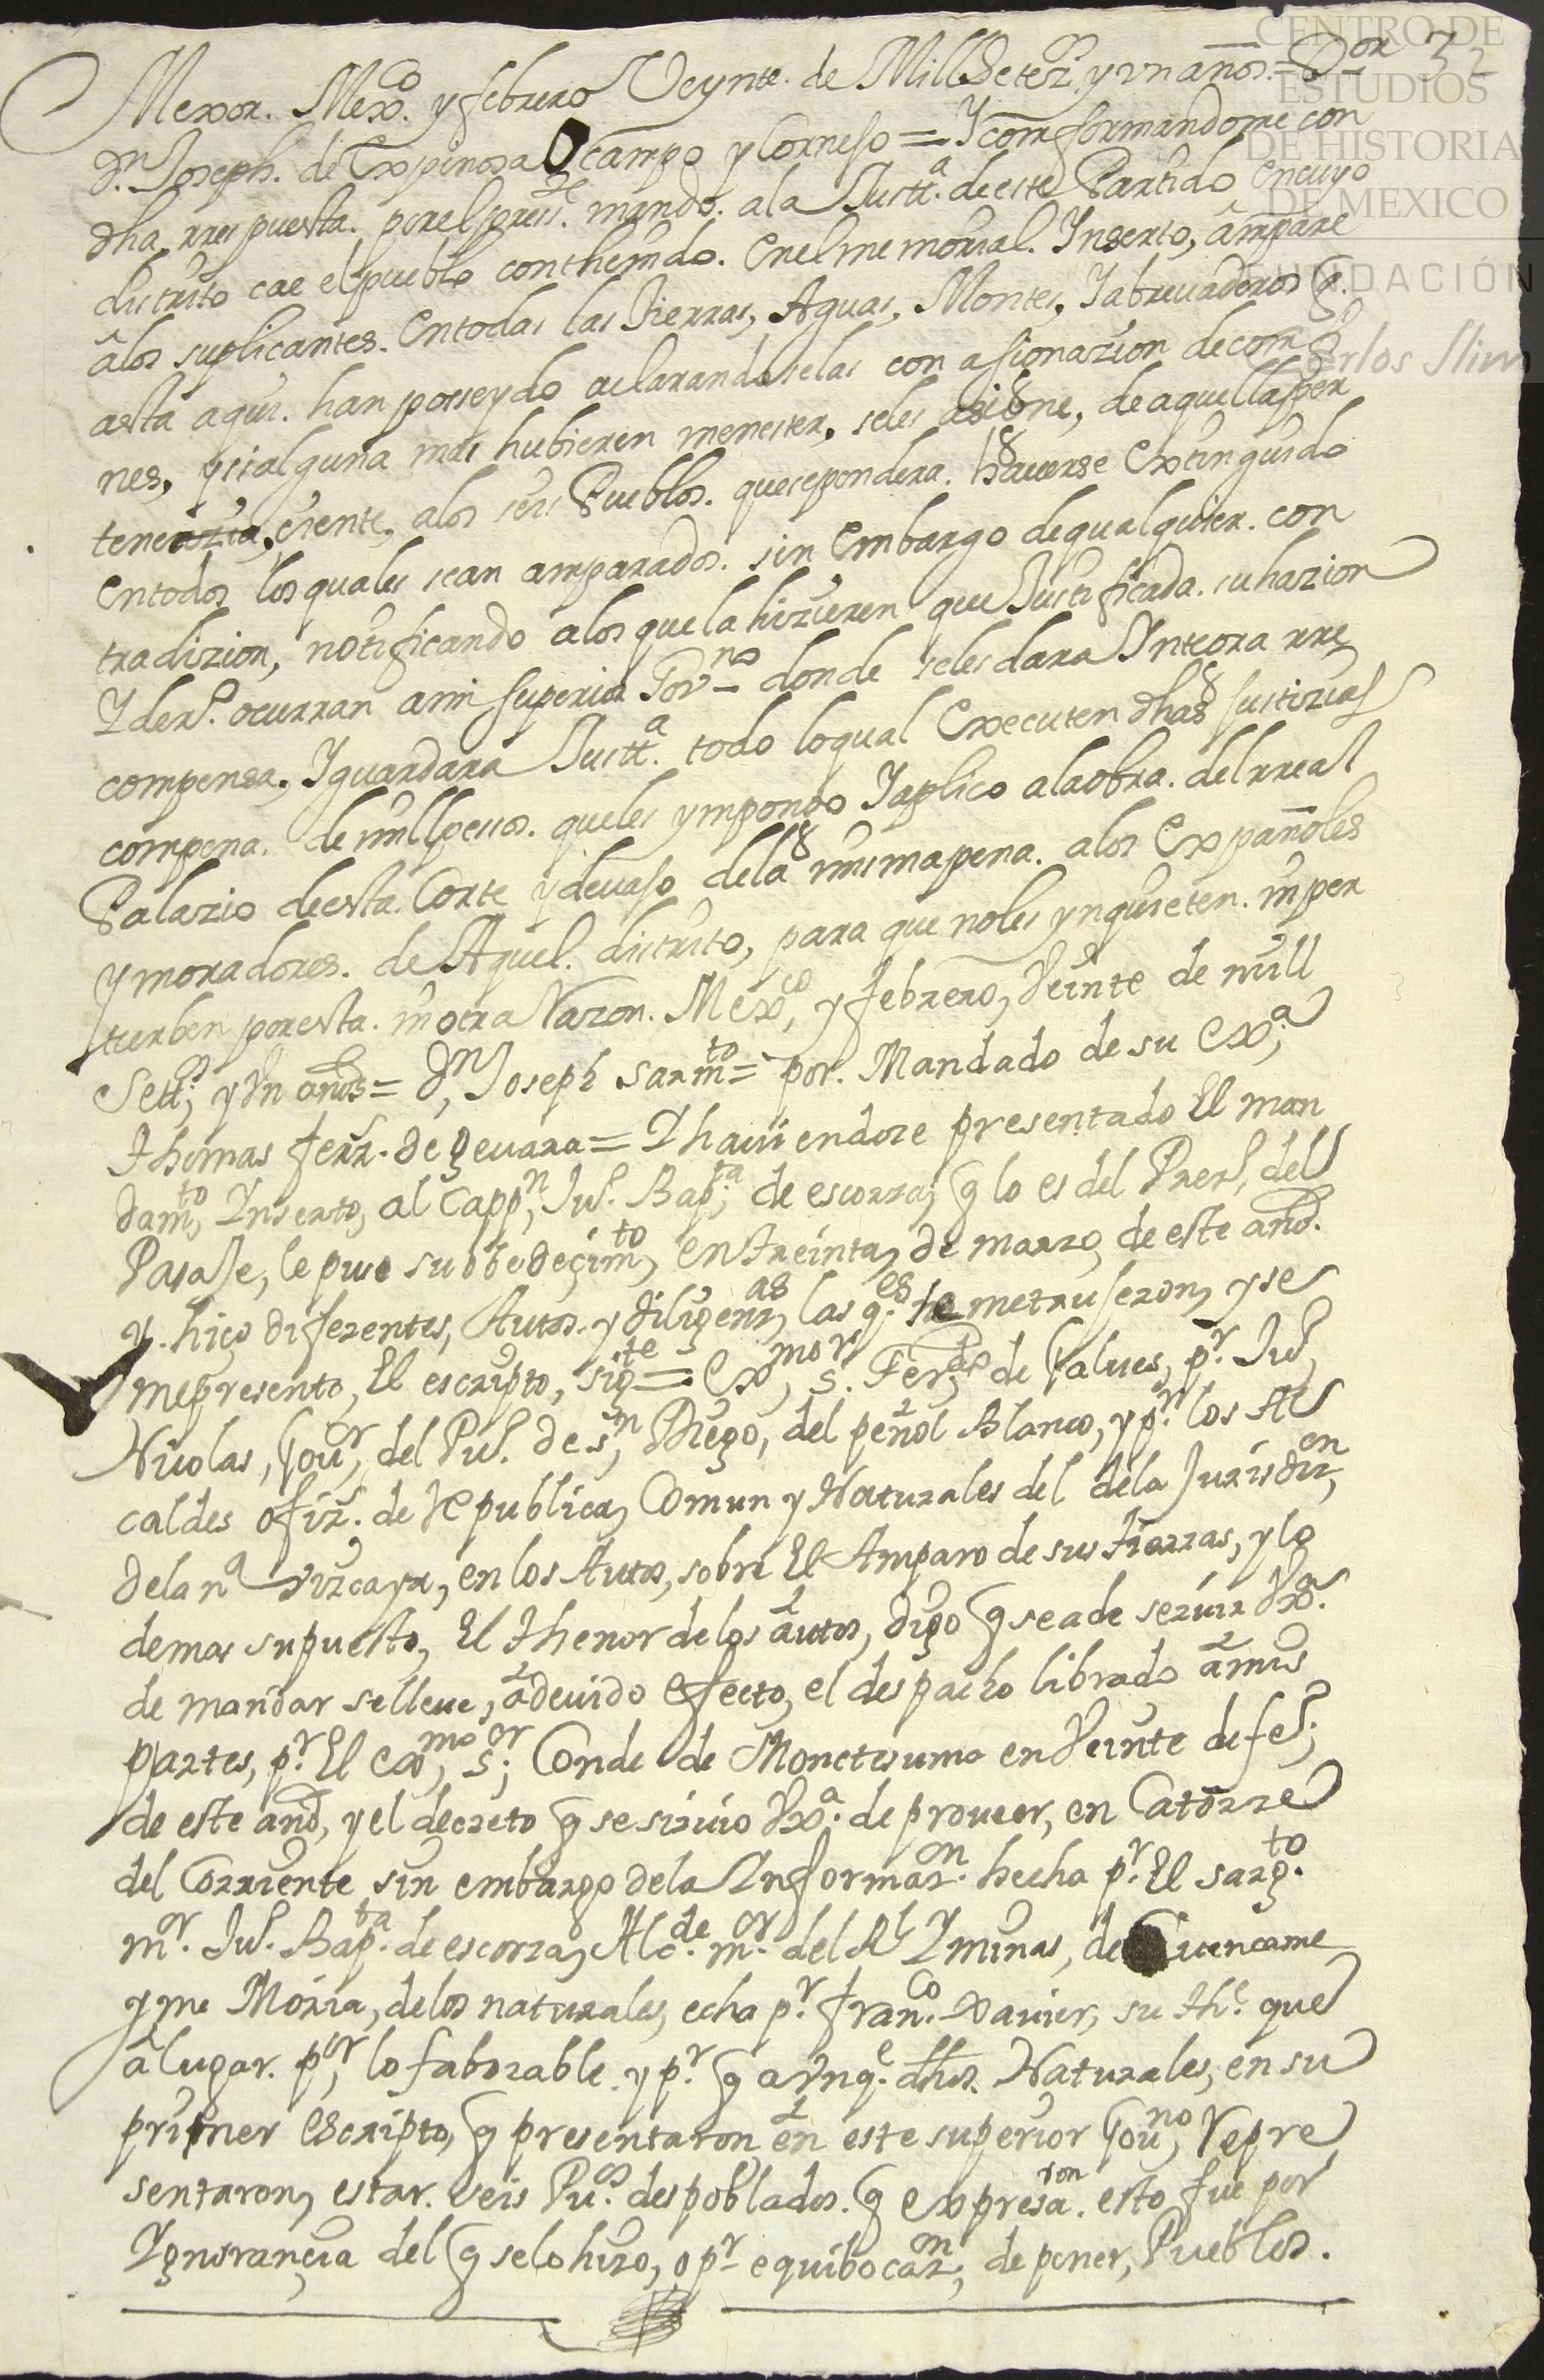 Mexor. Mexco. y febrero Veynte. de Mill Setezs. y vn años. = Dor 32
dn. Joseph. de Espinosa Ocampo y Cornejo = Y comformandome con
dha rrespuesta. por el presste. mando. a la Justta. de este Partido, en cuyo
distrito cae el pueblo conthenido. en el memorial. Inserto, âmpare
â los suplicantes. en todas las tierras, Aguas, Montes, Y abreuaderos q.
asta aqui. han posseydo aclarandoselas con asignazion de comfi
nes, y si alguna mas hubieren menester, se les asigne, de aquellas per
teneziente, alos seis Pueblos. que se pondera. hauerse extinguido
en todos los quales sean amparados. sin embargo de qualquier. con
tradizion, notificando a los que la hizieren que Justificada. su hazion
Y derº. ocurran a mi superior Govno donde se les dara Yntegra rre
compensa, Y guardara Justta. todo lo qual executen dhas justizias
compena. de mill pessos. que les ympongo Y aplico a la obra. del rreal
Palazio de esta. Corte y devajo de la misma pena. a los españoles
y moradores. de Aquel. distrito, para que no les ynquieten. ni per
turben por esta. ni otra Razon. Mexco, y febrero, Veinte de mill
Settos, y Vn años = Dn, Joseph sarmto = por. Mandado de su Exa,
Thomas ferrs. de gevara = Y haviendose presentado El man
damto, Ynserto, al Cappn, Juº. Bapta, de escorza, q lo es del Presº, del
Pasaje, le puso su obedeçimto, en treinta, de marzo, de este año.
y. hiço diferentes, Autos. y diligenzas, las qes. me trujeron, y se
me presento, El escripto, sigte = Exmo, sr. Ferdo de Galues, pr. Juº,
Nicolas, Gour, del Puº. de sn, Diego, del peñol Blanco, y pr. los Al
caldes ofizs. de Republica, Comun y Naturales del de la Jurisdizen,
de la na vizcaya, en los Autos, sobre El Amparo de sus tierras, y lo
demas supuesto, El thenor de los autos, digo q se a de seruir Vxa.
de mandar se lleue, a deuido efecto, el despacho librado a mis
partes, pr. El exmo, sor; Conde de Moctesuma en Veinte de feº;
de este año, y el decreto q se siruio Vxa. de proueer, en Catorze
del Corriente sin embargo de la Ynformazn. hecha pr. El sargto.
mor. Juº. Bapta. de escorza, Alcde. mor. del Rl Y minas, de Cuencame
y me Moria, de los naturales, echa pr. franco. xavier, su thº. que
â lugar. por, lo faborable. y pr. q avnqe. dhos. Naturales, en su
primer escripto, q presentaron en este superior Gouno, Repre
sentaron, estar. seis Pus. despoblados. q expresaron. esto fue por
Ygnorançia del q se lo hizo, o pr. equibocazn, de poner, Pueblos.